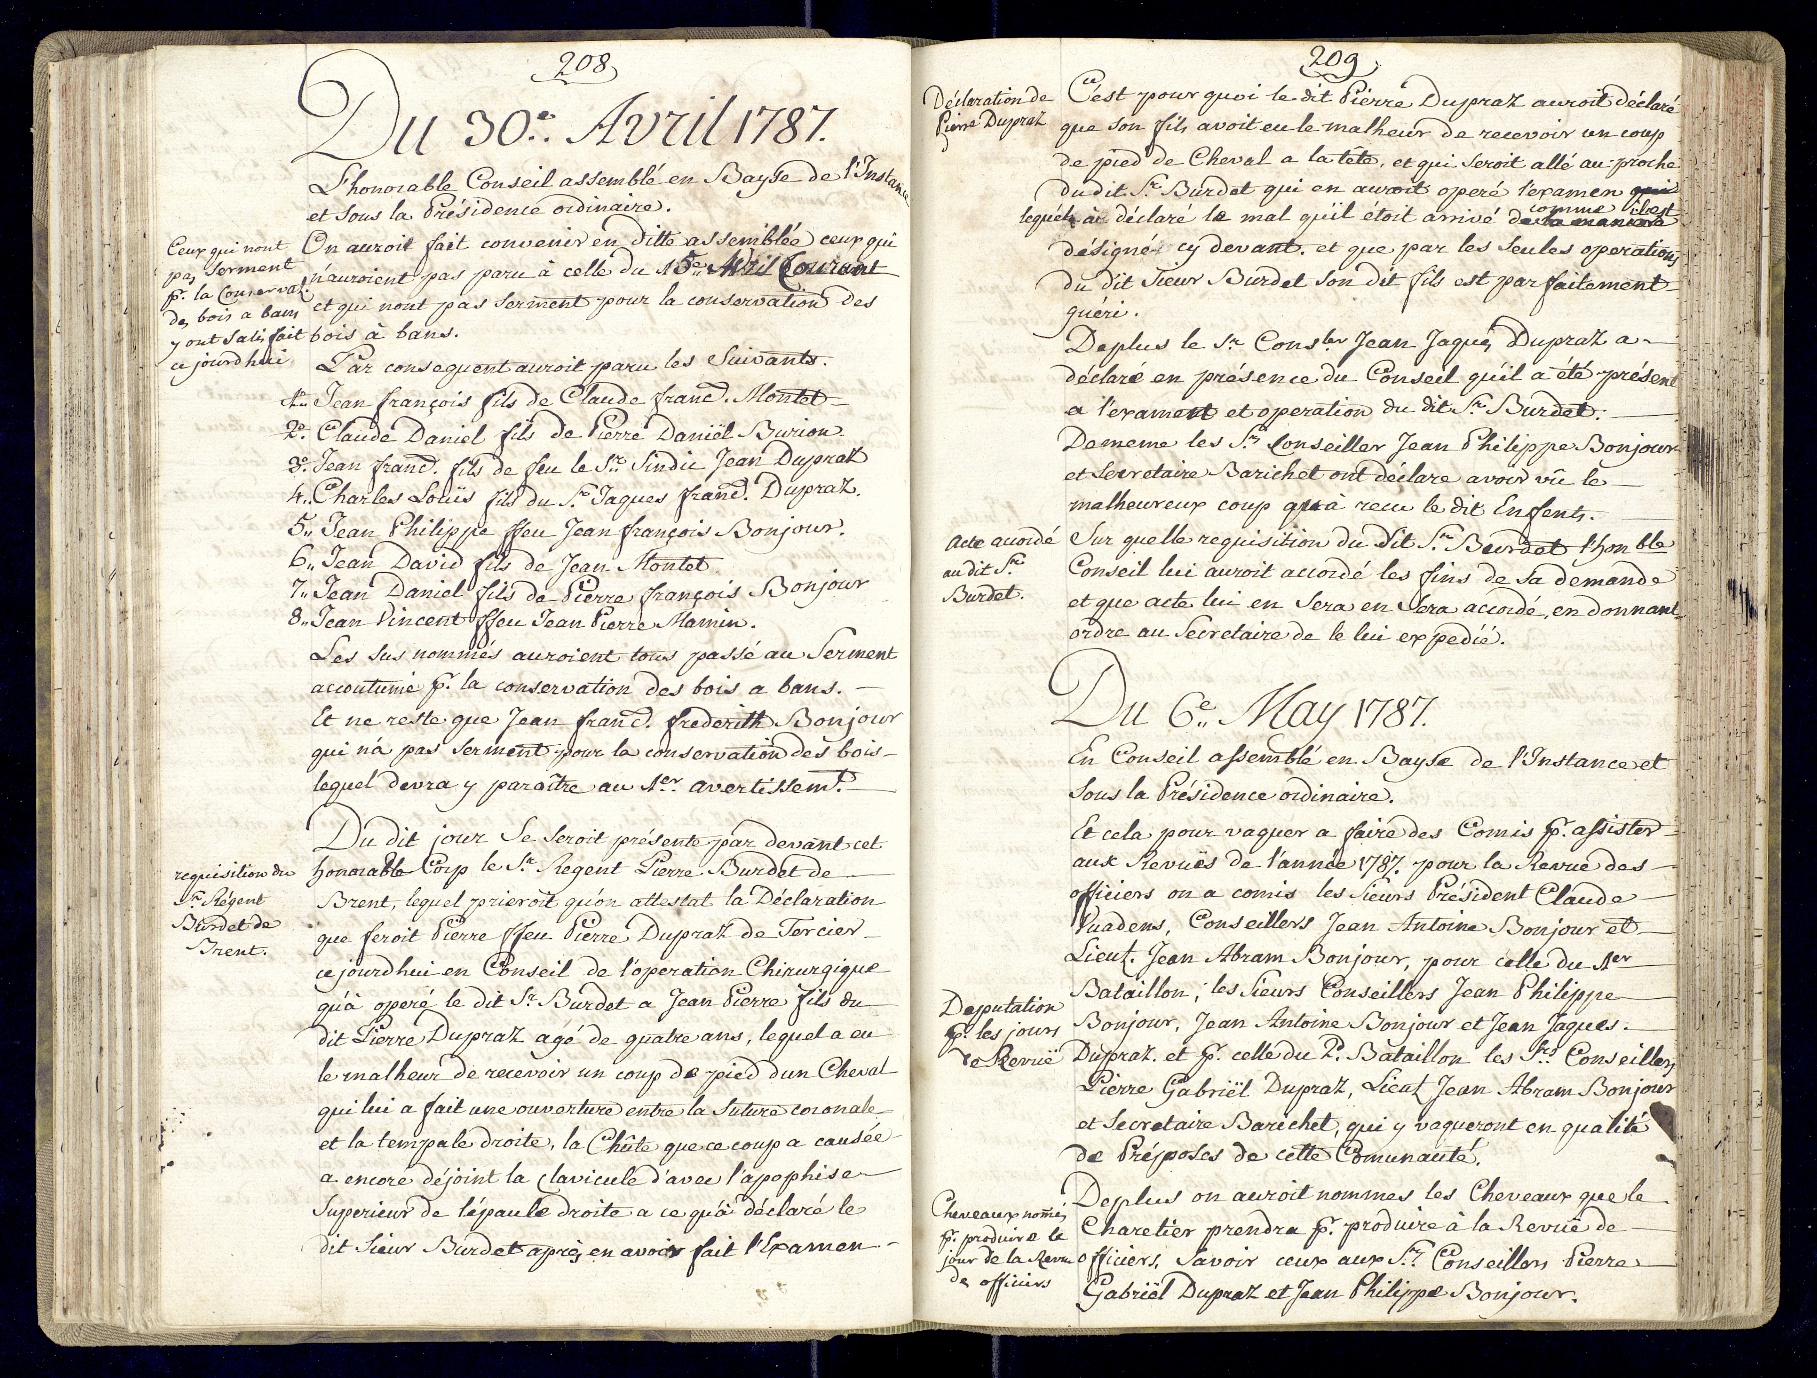 208
Du 30.e Avril 1787.
L'honorable Conseil assemblé en Bayse de l'Instance
et sous la Présidence ordinaire.
Ceux qui nont
pas serment
pr. la Conservat.
des bois a bans
y ont satisfait
ce jourdhui
On auroit fait convenir en ditte assemblée ceux qui
n'auroient pas paru à celle du 15e. Avril Courant
et qui nont pas serment pour la conservation des
bois à bans.
Par consequent auroit paru les Suivants.
1o.. Jean françois fils de Claude franç. Montet
2o. Claude Daniel fils de Pierre Daniël Burion.
3o. Jean franç. fils de feu le Sr. Sindic Jean Dupraz
4.. Charles Louïs fils du Sr. Jaques franç. Dupraz.
5.. Jean Philippe ffeu Jean françois Bonjour.
6.. Jean David fils de Jean Montet
7.. Jean Daniel fils de Pierre françois Bonjour
8.. Jean Vincent ffeu Jean Pierre Mamin.
Les sus nommés auroient tous passé au Serment
accoutumé pr. la conservation des bois a bans.
Et ne reste que Jean franç. frederith Bonjour
qui n'a pas serment pour la conservation des bois
lequel devra y paraître au 1er. avertissemt.
Du dit jour Se seroit présenté par devant cet
requisition du
Sr. Régent
Burdet de
Brent.
honorable Corp le Sr. Regent Pierre Burdet de
Brent, lequel prieroit qu'on attestat la Déclaration
que feroit Pierre ffeu Pierre Dupraz de Tercier
cejourdhui en Conseil de l'operation Chirurgique
qu'à operé le dit Sr. Burdet a Jean Pierre fils du
dit Pierre Dupraz agé de quatre ans, lequel a eu
le malheur de recevoir un coup de pied dun Cheval
qui lui a fait une ouverture entre la suture coronale
et la tempale droite, la Chûte que ce coup a causée
a encore déjoint la clavicule d'avec l'apophise
Superieur de l'épaule droite a ce qu'à déclaré le
dit Sieur Burdet après en avoir fait l'Examen
209
Déclaration de
Pierre Dupraz
C'est pour quoi le dit Pierre Dupraz auroit déclaré
que son fils avoit eu le malheur de recevoir un coup
de pied de Cheval a la tete, et qui seroit allé au proche
du dit Sr. Burdet qui en auroit operé l'examen qui
comme il est
lequel à déclaré le mal qu'il étoit arrivé de la maniere
désigné cy devant. et que par les seules operations
du dit Sieur Burdet son dit fils est parfaitement
guéri.
Deplus le Sr. Conser Jean Jaques Dupraz a
déclaré en présence du Conseil qu'il a été présent
a l'examen et operation du dit Sr. Burdet.
Dememe les Srs. Conseiller Jean Philippe Bonjour
et Secretaire Barichet ont déclare avoir vû le
malheureux coup qu'à recu le dit Enfent.
Acte acordé
au dit Sr.
Burdet.
Sur quelle requisition du dit Sr. Burdet l'honble
Conseil lui auroit accordé les fins de sa demande
et que acte lui en sera en sera accordé, en donnant
ordre au Secretaire de le lui expedié.
Du 6e.. May 1787.
En Conseil assemblé en Bayse de l'Instance et
sous la Présidence ordinaire.
Et cela pour vaquer a faire des Comis pr. assister
aux Revuës de l'année 1787. pour la Revue des
officiers on a comis les Sieurs Président Claude
Vuadens, Conseillers Jean Antoine Bonjour et
Lieut. Jean Abram Bonjour, pour celle du 1er
Deputation
pr. les jours
de Revuë
Bataillon, les Sieurs Conseillers Jean Philippe
Bonjour, Jean Antoine Bonjour et Jean Jaques
Dupraz. et pr. celle du 2d. Bataillon les Srs. Conseillers
Pierre Gabriël Dupraz, Lieut Jean Abram Bonjour
et Secretaire Barichet, qui y vaqueront en qualité
de Préposés de cette Comunauté.
Cheveaux només
pr. produire le
jour de la Revue
des officiers
Deplus on auroit nommés les Cheveaux que le
Charetier prendra pr. produire à la Revuë de
officiers, Savoir ceux aux Srs. Conseillers Pierre
Gabriël Dupraz et Jean Philippe Bonjour.